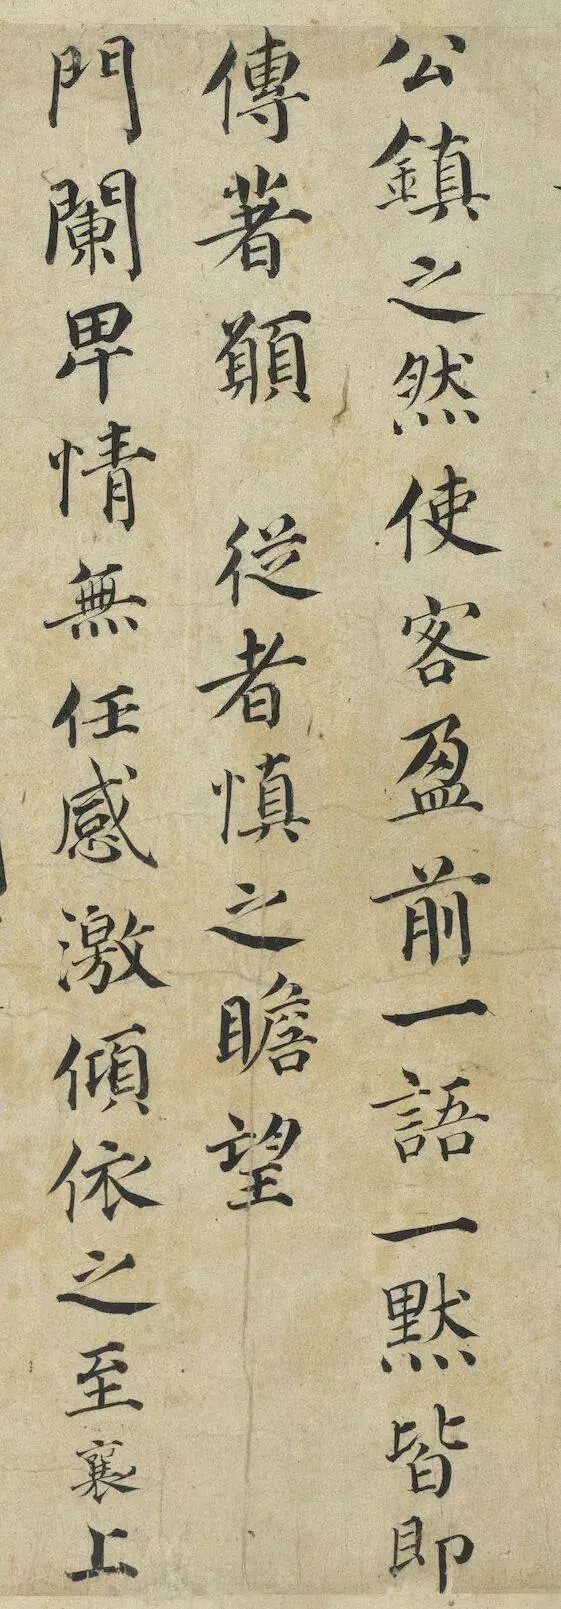 公鎮之然使客盈前一語一黙皆即
傳著願 従者慎之瞻望
門闌卑情無任感激傾依之至襄上